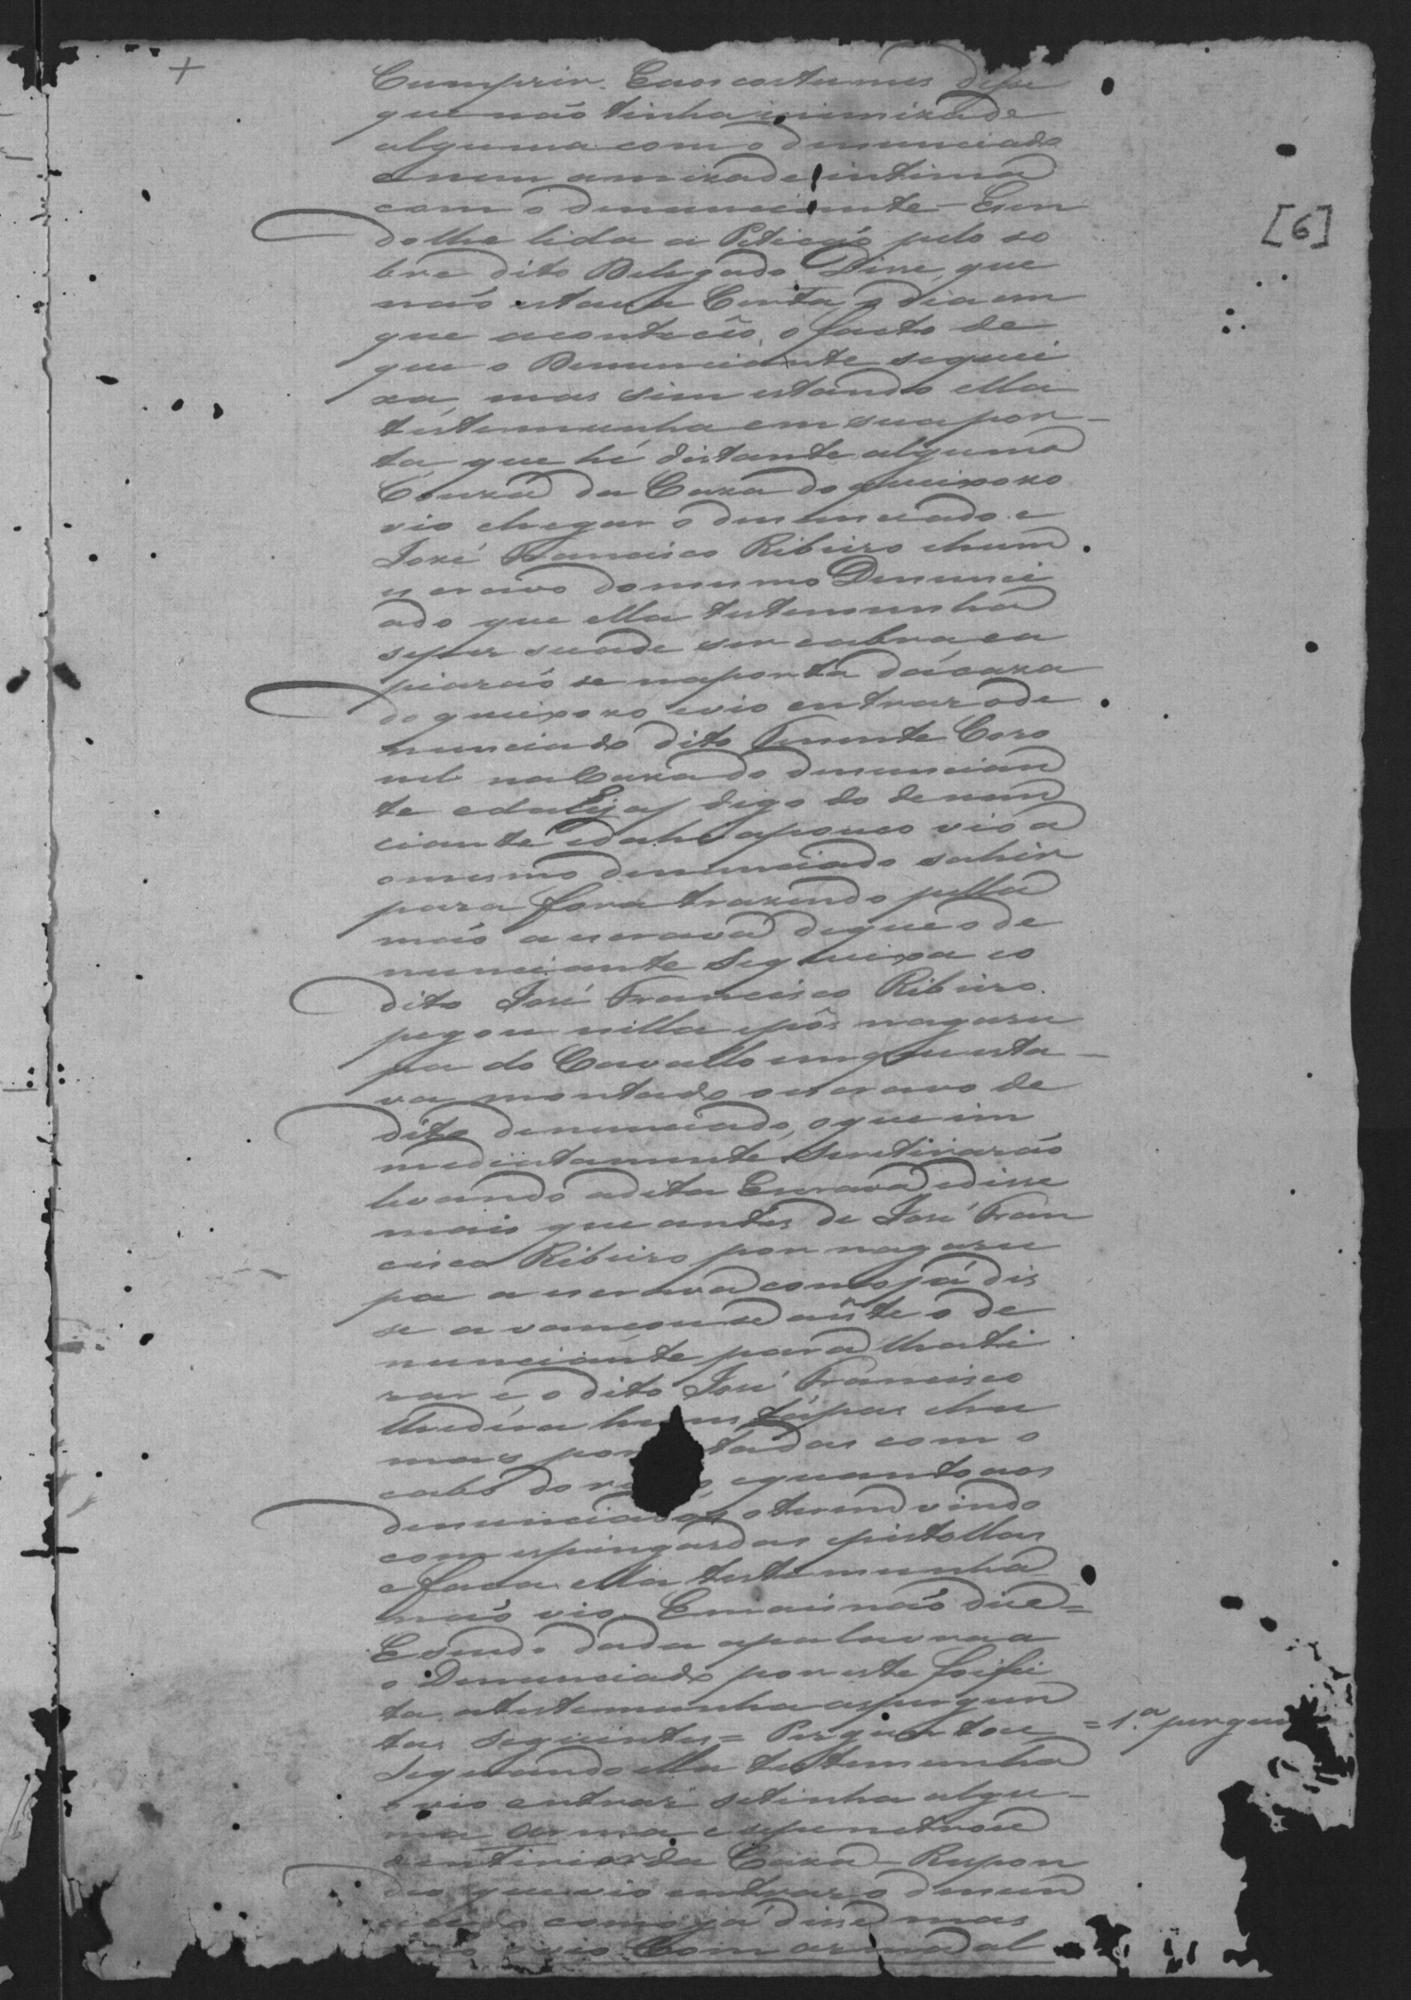 Cumprir. Eaos costumes disse
que não tinha inimizade
alguma com o denunciado
e nem amizade intima
com o denunciante — Esen
dolhe lida a Petição pelo so
bre dito Delegado Disse, que
não estava Certa o dia em
que aconteceo, o facto de
que o Denunciante sequei
xa, mas sim estando ella
testemunha em sua por-
ta que hé distante alguma
Couza da Caza do queixozo
vio chegar o denunciado e
José Francisco Ribeiro ehum
escravo domesmo Denunci
ado que ella testemunha
seper suade ser cabra ea
piarão se naporta dacaza
do queixozo evio entrar ode
nunciado dito Tenente Coro
nel na Caza do denuncian
te edahy digo do denun
ciante edahi apouco vio a
omesmo denunciado sahir
para fora trazendo pella
mão a escrava deque o de
nunciante sequeixa eo
dito José Francisco Ribeiro
pegou nella epôs nagaru
pa do Cavallo emque esta-
va montado oescravo de
dito denunciado, oque im
mediatamente seretirarão
levando adita Escrava edisse
mais que antes de José Fran
cisco Ribeiro por nagaru
pa a escrava como já dis
se avancouse ante o de
nunciante para lhati
rar e o dito José Francisco
lhedera huns tápas ehu
mas por tadas com o
cabo do r , equanto aos
denunciados oterem vindo
com espingardas epistollas
e faca ella testemunha
não vio. Emais não disse=
Esendo dada apalavra a
o Denunciado por este foi fei
ta atestemunha aspergun
tas seguintes= Perguntou = 1.ª pergun
sequando ella testemunha
o vio entrar setinha algu-
ma arma esepenetrou
o interior da Caza — Respon
deo que vio entrar o denun
ciado como ja disse mas
não o vio Com arma al
[6]